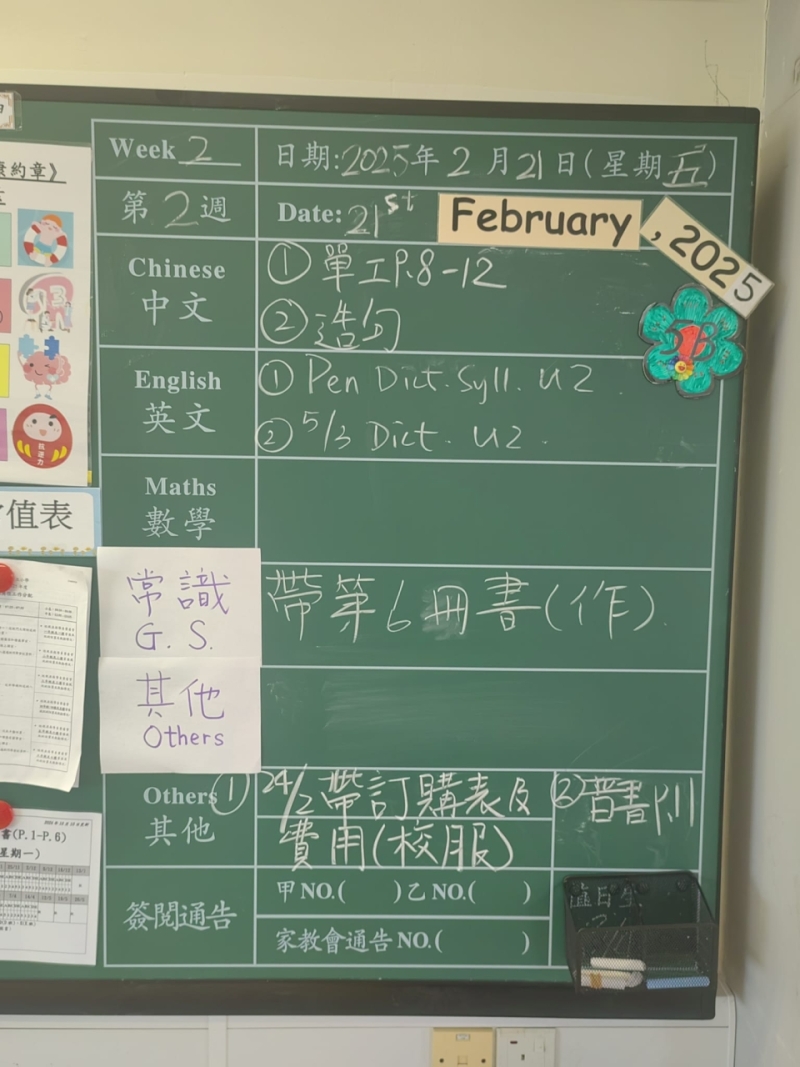 康約章》
Week 2
日期:2025年2月21日(星期五)
第2週
Date: 21st February, 2025
Chinese
中文
①單工P.8-12
②造句
5B
English
英文
①Pen Dict. Syll. U2
②5/3 Dict. U2.
Maths
數學
值表
常識
G. S.
帶第6冊書(作).
其他
Others
Others
其他
①24/2帶訂購表及
費用(校服)
②普書P.11
書(P.1-P.6)
星期一)
簽閱通告
甲NO.( )乙NO.( )
家教會通告NO.( )
值日生